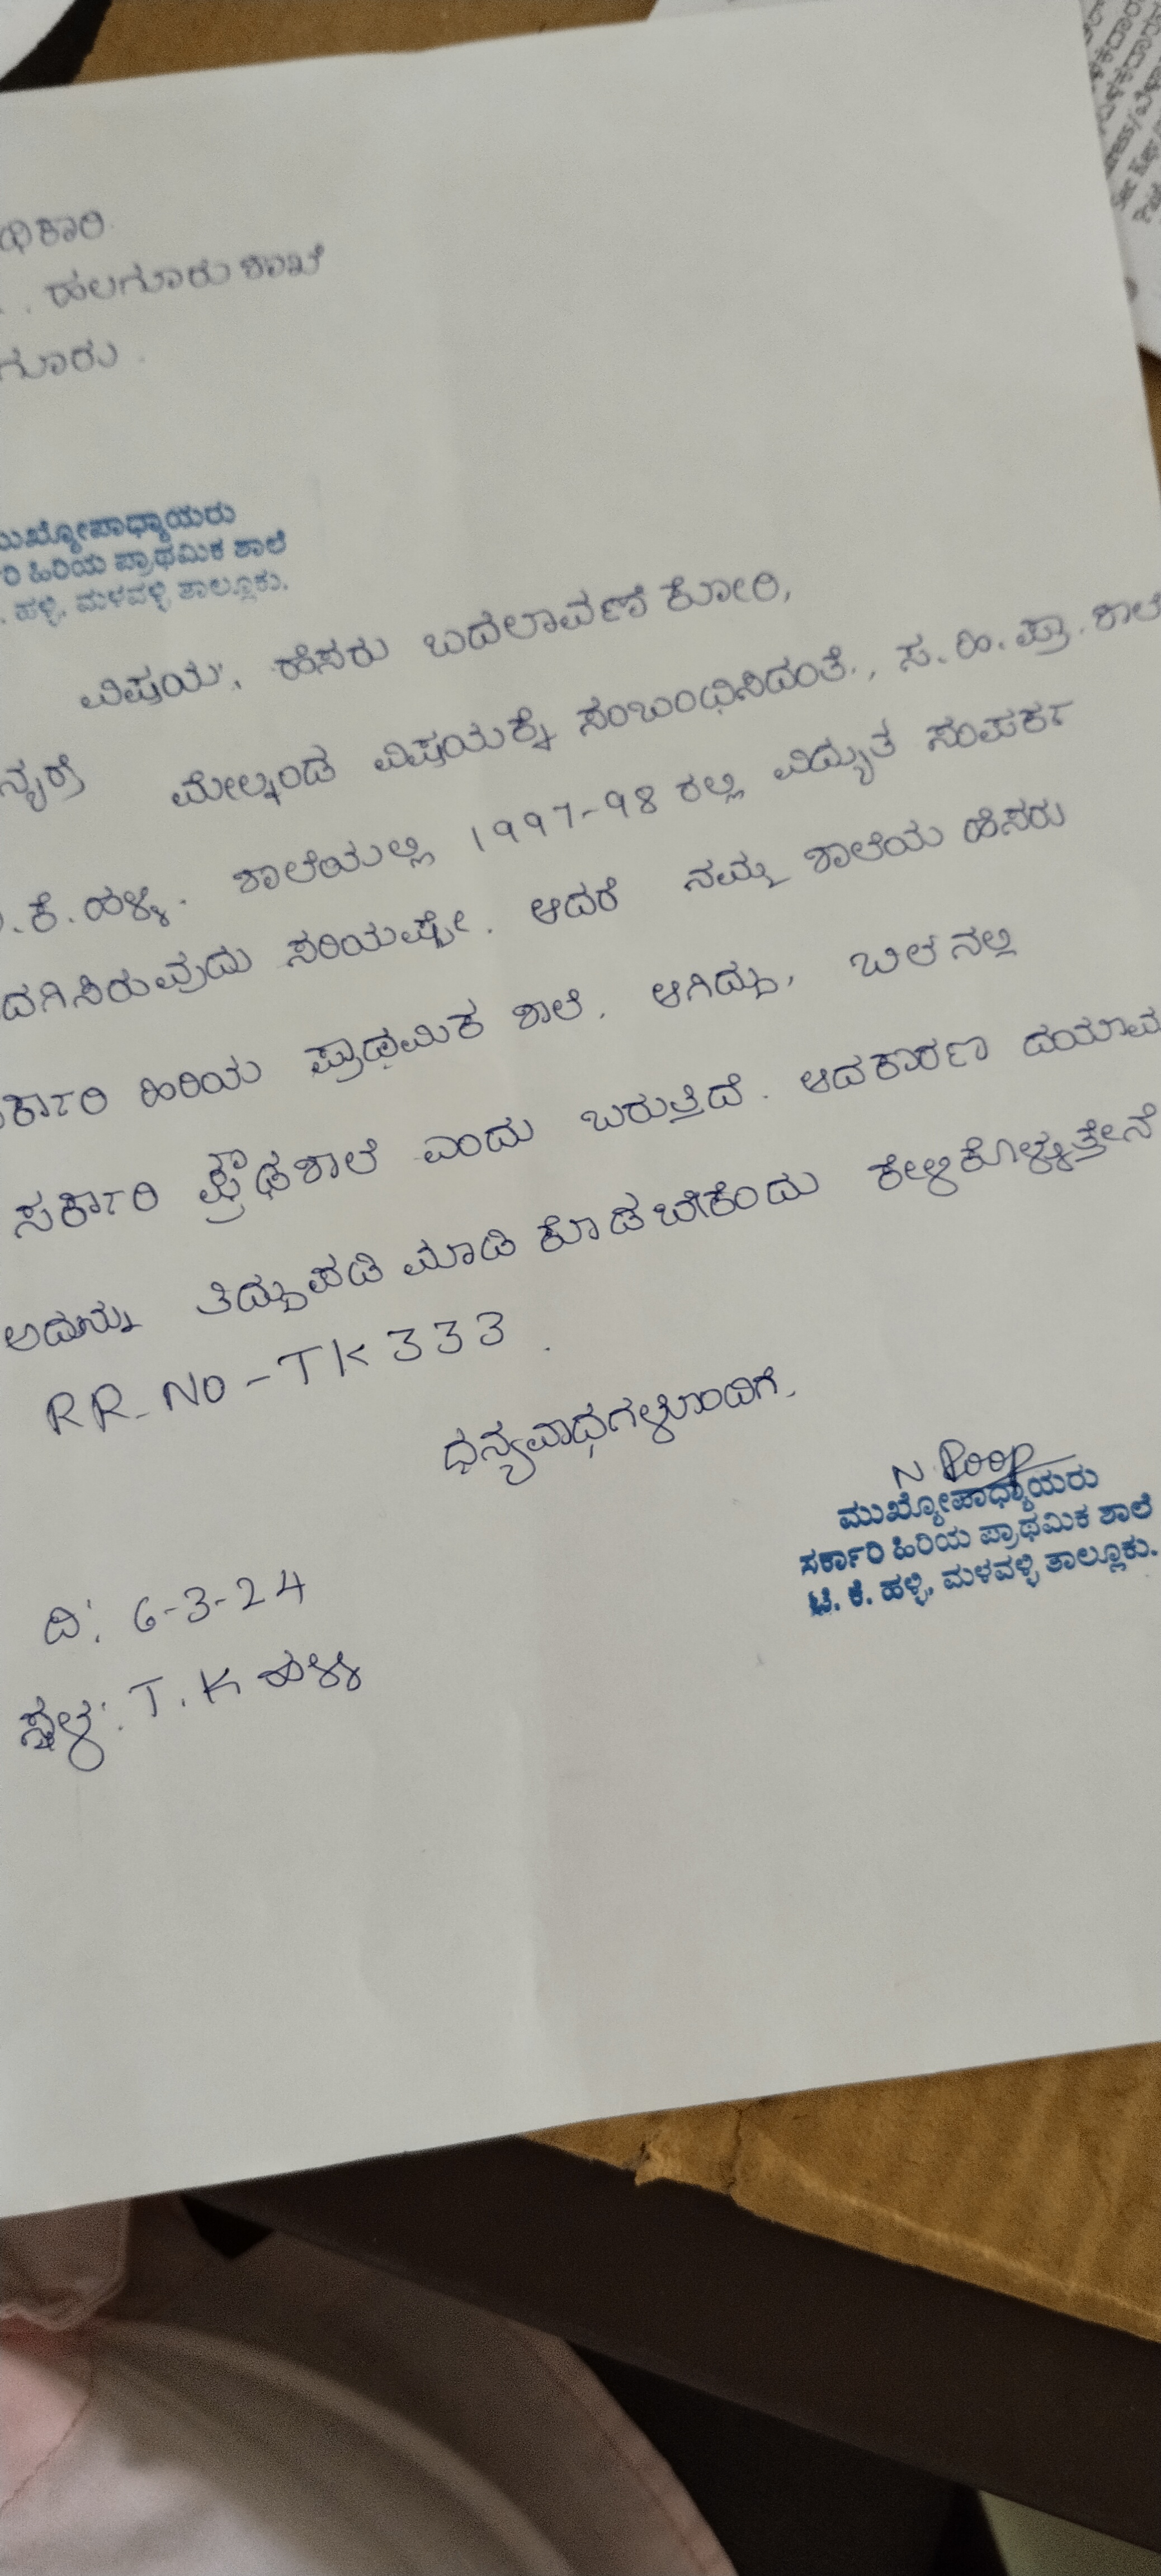 ಧಿಕಾರಿ
ಹಲಗೂರು ಶಾಖೆ
ಗೂರು.
ಮುಖ್ಯೋಪಾಧ್ಯಾಯರು
ರಿ ಹಿರಿಯ ಪ್ರಾಥಮಿಕ ಶಾಲೆ
. ಹಳ್ಳಿ, ಮಳವಳ್ಳಿ ತಾಲ್ಲೂಕು.
ವಿಷಯ:. ಹೆಸರು ಬದಲಾವಣೆ ಕೋರಿ,
ನ್ಯರೆ ಮೇಲ್ಕಂಡ ವಿಷಯಕ್ಕೆ ಸಂಬಂಧಿಸಿದಂತೆ, ಸ.ಹಿ.ಪ್ರಾ.ಶಾಲೆ
.ಕೆ.ಹಳ್ಳಿ. ಶಾಲೆಯಲ್ಲಿ 1997-98 ರಲ್ಲಿ ವಿದ್ಯುತ ಸಂಪರ್ಕ
ದಗಿಸಿರುವುದು ಸರಿಯಷ್ಟೇ. ಆದರೆ ನಮ್ಮ ಶಾಲೆಯ ಹೆಸರು
ರ್ಕಾರಿ ಹಿರಿಯ ಪ್ರಾಥಮಿಕ ಶಾಲೆ, ಆಗಿದ್ದು, ಬಿಲ್ ನಲ್ಲಿ
ಸರ್ಕಾರಿ ಪ್ರೌಢಶಾಲೆ ಎಂದು ಬರುತ್ತಿದೆ. ಆದಕಾರಣ ದಯಾಮ
ಅದನ್ನು ತಿದ್ದುಪಡಿ ಮಾಡಿ ಕೊಡಬೇಕೆಂದು ಕೇಳಿಕೊಳ್ಳುತ್ತೇನೆ
RR-No-TK 333.
ಧನ್ಯವಾಧಗಳೊಂದಿಗೆ.
ಮುಖ್ಯೋಪಾಧ್ಯಾಯರು
ಸರ್ಕಾರಿ ಹಿರಿಯ ಪ್ರಾಥಮಿಕ ಶಾಲೆ
ಟಿ. ಕೆ. ಹಳ್ಳಿ, ಮಳವಳ್ಳಿ ತಾಲ್ಲೂಕು.
ದಿ: 6-3-24
ಸ್ಥಳ: T.K ಹಳ್ಳಿ